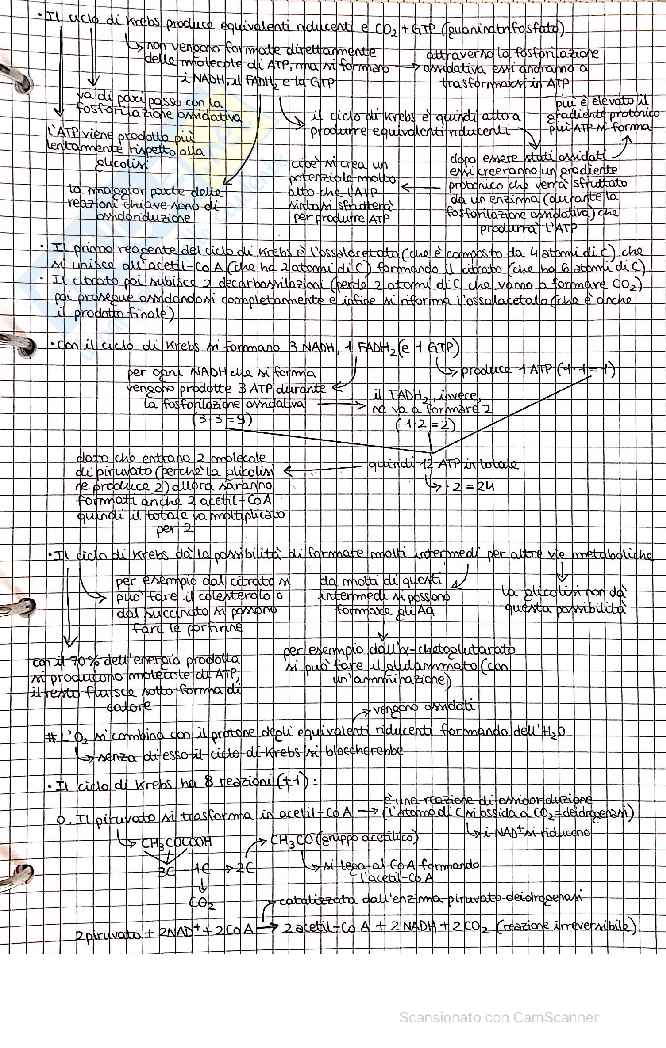 · Il ciclo di Krebs produce equivalenti riducenti e CO2 + GTP (guanintrifosfato)
non vengono formate direttamente
delle molecole di ATP, ma si formano
i NADH, il FADH2 e la GTP
attraverso la fosforilazione
ossidativa essi andranno a
trasformarsi in ATP
va di pari passo con la
fosforilazione ossidativa
il ciclo di Krebs è quindi atto a
produrre equivalenti riducenti
più è elevato il
gradiente protonico
più ATP si forma
L'ATP viene prodotto più
lentamente rispetto alla
glicolisi
la maggior parte delle
reazioni chiave sono di
ossidoriduzione
cioè si crea un
potenziale molto
alto che l'ATP
sintasi sfrutterà
per produrre ATP
dopo essere stati ossidati
essi creeranno un gradiente
protonico che verrà sfruttato
da un enzima (durante la
fosforilazione ossidativa) che
produrrà l'ATP
· Il primo reagente del ciclo di Krebs è l'ossalacetato (che è composto da 4 atomi di C) che
si unisce all'acetil-CoA (che ha 2 atomi di C) formando il citrato (che ha 6 atomi di C)
· Il citrato poi subisce 2 decarbossilazioni (perde 2 atomi di C che vanno a formare CO2)
poi prosegue ossidandosi completamente e infine si riforma l'ossalacetato (che è anche
il prodotto finale)
· Con il ciclo di Krebs si formano 3 NADH, 1 FADH2 (e 1 GTP)
produce 1 ATP (1·1=1)
per ogni NADH che si forma
vengono prodotte 3 ATP durante
la fosforilazione ossidativa
(3·3=9)
il FADH2, invece,
ne va a formare 2
(1·2=2)
quindi 12 ATP in totale
·2=24
dato che entrano 2 molecole
di piruvato (perché la glicolisi
ne produce 2) allora saranno
formati anche 2 acetil-CoA
quindi il totale va moltiplicato
per 2
· Il ciclo di Krebs dà la possibilità di formare molti intermedi per altre vie metaboliche
per esempio dal citrato si
può fare il colesterolo o
dal succinato si possono
fare le porfirine
da molti di questi
intermedi si possono
formare gli Aa
la glicolisi non dà
questa possibilità
con il 90% dell'energia prodotta
si producono molecole di ATP,
il resto fluisce sotto forma di
calore
per esempio dall'α-chetoglutarato
si può fare il glutammato (con
un'amminazione)
vengono ossidati
# L'O2 si combina con il protone degli equivalenti riducenti formando dell'H2O
senza di esso il ciclo di Krebs si bloccherebbe
· Il ciclo di Krebs ha 8 reazioni (+1):
0. Il piruvato si trasforma in acetil-CoA
è una reazione di ossidoriduzione
(l'atomo di C si ossida a CO2 = deidrogenasi)
i NAD+ si riducono
CH3COCOOH
CH3CO (gruppo acetilico)
3C - 1C → 2C
si lega al CoA formando
l'acetil-CoA
CO2
catalizzata dall'enzima piruvato deidrogenasi
2 piruvato + 2 NAD+ + 2 CoA → 2 acetil-CoA + 2 NADH + 2 CO2 (reazione irreversibile)
Scansionato con CamScanner